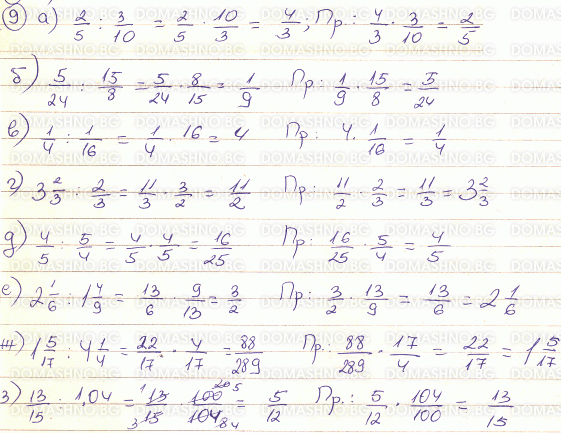 9 а) 2/5 : 3/10 = 2/5 · 10/3 = 4/3; Пр.: 4/3 · 3/10 = 2/5
б) 5/24 : 15/8 = 5/24 · 8/15 = 1/9 Пр: 1/9 · 15/8 = 5/24
в) 1/4 : 1/16 = 1/4 · 16 = 4 Пр: 4 · 1/16 = 1/4
г) 3 2/3 : 2/3 = 11/3 · 3/2 = 11/2 Пр: 11/2 · 2/3 = 11/3 = 3 2/3
д) 4/5 : 5/4 = 4/5 · 4/5 = 16/25 Пр: 16/25 · 5/4 = 4/5
е) 2 1/6 : 1 4/9 = 13/6 · 9/13 = 3/2 Пр: 3/2 · 13/9 = 13/6 = 2 1/6
ж) 1 5/17 : 4 1/4 = 22/17 · 4/17 = 88/289 Пр.: 88/289 · 17/4 = 22/17 = 1 5/17
з) 13/15 : 1,04 = 13/15 · 100/104 = 5/12 Пр.: 5/12 · 104/100 = 13/15